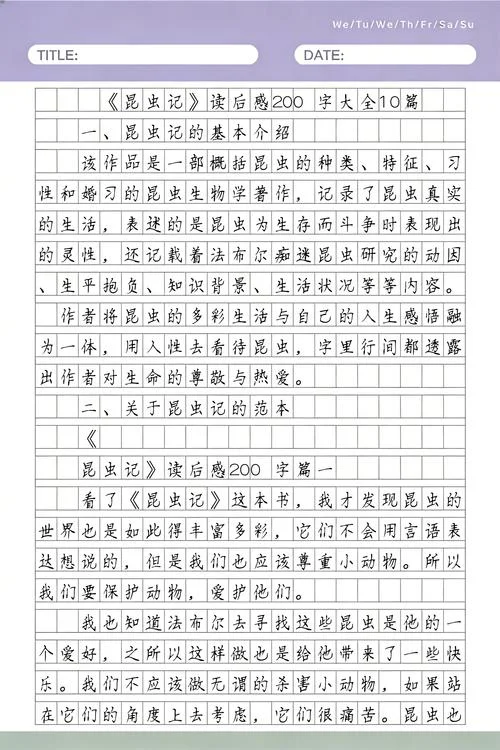 We/Tu/We/Th/Fr/Sa/Su
TITLE:
DATE:
《昆虫记》读后感200 字大全10篇
一、昆虫记的基本介绍
该作品是一部概括昆虫的种类、特征、习
性和婚习的昆虫生物学著作，记录了昆虫真实
的生活，表述的是昆虫为生存而斗争时表现出
的灵性，还记载着法布尔痴迷昆虫研究的动因
、生平抱负、知识背景、生活状况等等内容。
作者将昆虫的多彩生活与自己的人生感悟融
为一体，用人性去看待昆虫，字里行间都透露
出作者对生命的尊敬与热爱。
二、关于昆虫记的范本
《
昆虫记》读后感200 字篇一
看了《昆虫记》这本书，我才发现昆虫的
世界也是如此得丰富多彩，它们不会用言语表
达想说的，但是我们也应该尊重小动物。所以
我们要保护动物，爱护他们。
我也知道法布尔去寻找这些昆虫是他的一
个爱好，之所以这样做也是给他带来了一些快
乐。我们不应该做无谓的杀害小动物，如果站
在它们的角度上去考虑，它们很痛苦。昆虫也